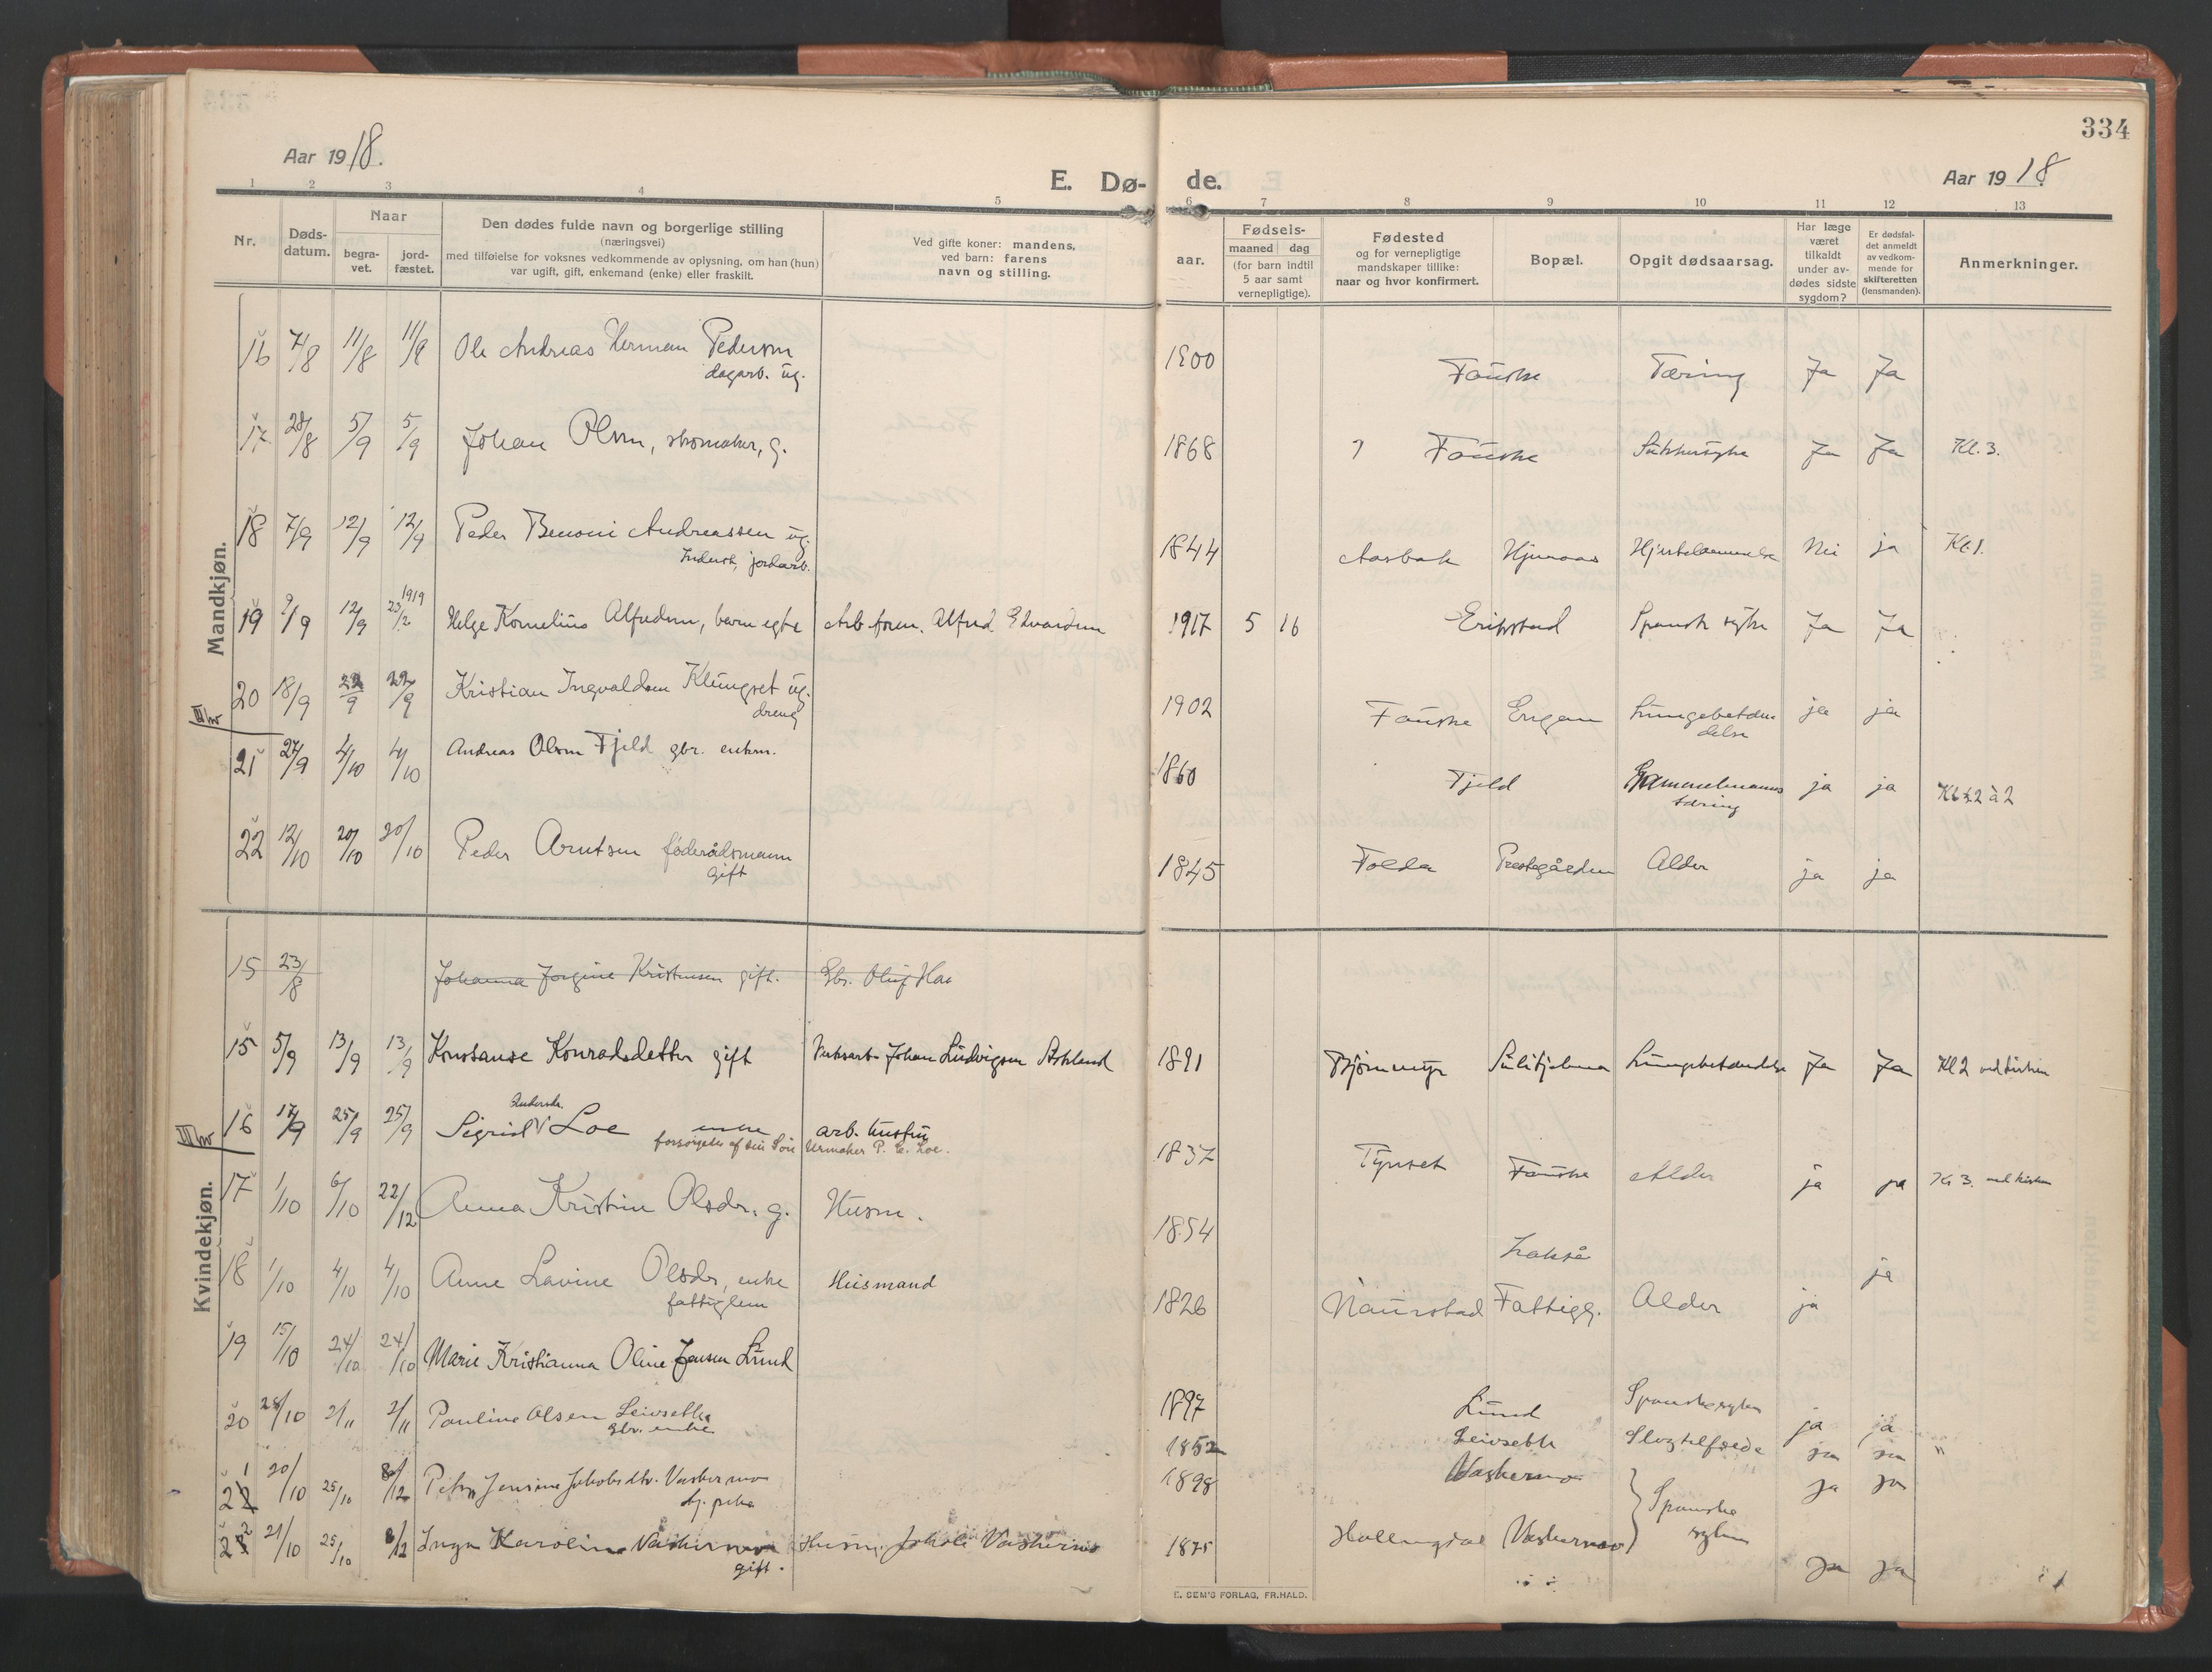 334
Aar 1918.
E. Dø-
de.
Aar 1918
1 2 3 4 5 6 7 8 9 10 11 12 13
Nr.
Døds-
datum.
Naar
begra-
vet.
jord-
fæstet.
Den dødes fulde navn og borgerlige stilling
(næringsvei)
med tilføielse for voksnes vedkommende av oplysning, om han (hun)
var ugift, gift, enkemand (enke) eller fraskilt.
Ved gifte koner: mandens,
ved barn: farens
navn og stilling.
aar.
Fødsels-
maaned dag
(for barn indtil
5 aar samt
vernepligtige).
Fødested
og for vernepligtige
mandskaper tillike:
naar og hvor konfirmert.
Bopæl.
Opgit dødsaarsag.
Har læge
været
tilkaldt
under av-
dødes sidste
sygdom?
Er dødsfal-
det anmeldt
av vedkom-
mende for
skifteretten
(lensmanden).
Anmerkninger.
Mandkjøn.
16 7/8 11/8 11/8 Ole Andreas Herman Pedersen 1900 Fauske Tæring Ja Ja
dagarb. ug.
17 28/8 5/9 5/9 Johan Olsen, skomaker, g. 1868 Fauske Sukkersyke Ja Ja Kl. 3.
18 7/9 12/9 12/9 Peder Benoni Andreassen ug. 1844 Aasbak Hjemaas Hjertelammelse Nei ja Kl. 1.
Inderst, jordarb.
1919
19 9/9 12/9 23/2 Helge Kornelius Alfredsen, barn egte Arb. form. Alfred Edvardsen 1917 5 16 Erikstad Spansk syke Ja Ja
20 18/9 22/9 22/9 Kristian Ingvaldsen Klungset ug. 1902 Fauske Engan Lungebetæn- ja ja
dreng delse
III kv
21 27/9 4/10 4/10 Andreas Olsen Fjeld gbr. enkm. 1860 Fjeld Gammelmanns ja ja
tæring
22 12/10 20/10 20/10 Peder Arntsen føderådsmann 1845 Folda Prestegården Alder ja ja
gift
Kvindekjøn.
15 23/8 Johanna Jorgine Kristensen gift. Gbr. Oluf Haa
15 5/9 13/9 13/9 Konstanse Konradsdetter gift Verksarb. Johan Ludvigsen Stokland 1891 Bjørnmyr Sulitjelma Lungebetændelse Ja Ja Kl 2 ved kirken
16 17/9 25/9 25/9 Sigrid Loe enke arb. hustru 1837 Tynset Fauske Alder ja ja Kl 3. ved kirken
Andersdr.
forsørgedes af sin Søn Urmaker P. E. Loe.
III kv
17 1/10 6/10 22/12 Anna Kristine Olsdr. g. Husm. 1854 Lakså ja
18 1/10 4/10 4/10 Anne Lavine Olsdr, enke Husmand 1826 Naurstad Fattigg. Alder ja
fattiglem
19 15/10 24/10 24/10 Marie Kristianna Oline Jensen Lund 1897 Lund Spanskesyken ja ja
20 28/10 2/11 2/11 Pauline Olsen Leivseth 1852 Leivseth Slagtilfælde ja ja "
gbr. enke
21 20/10 25/10 8/12 Petra Jensine Jakobsdtr. Vaskermo 1898 Vaskermo ja ja
tj. pike
Spanske
syken
22 21/10 25/10 8/12 Inga Karoline Vaskermo Husm. Jakob Vaskermo 1875 Hallengdal Vaskermo ja ja
gift.
E. SEM'S FORLAG, FR.HALD.